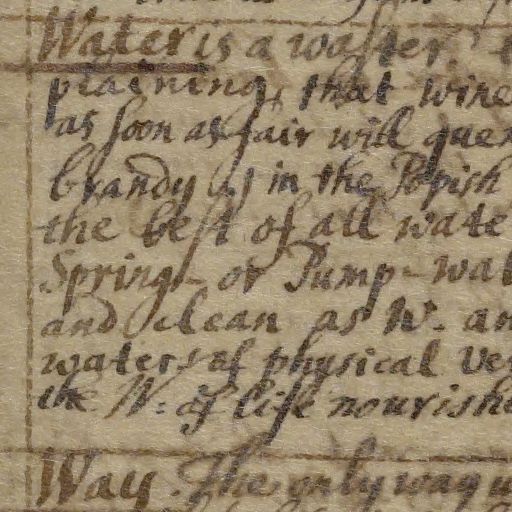 Water is a waster.
plaining, that wine
as soon as fair will quen
brandy as in the Popish
the best of all wate
Spring- or Pump-wat
and clean as W. an
waters of physical ve
the W: of life nourishe
Way. The only way